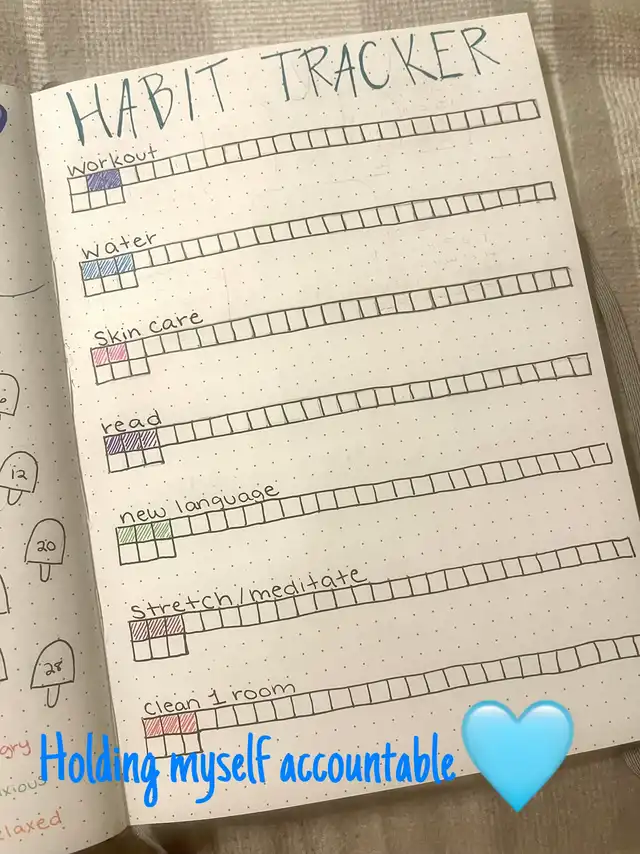 HABIT TRACKER
workout
water
Skin care
read
new language
Stretch/meditate
clean 1 room
12
20
28
Holding myself accountable